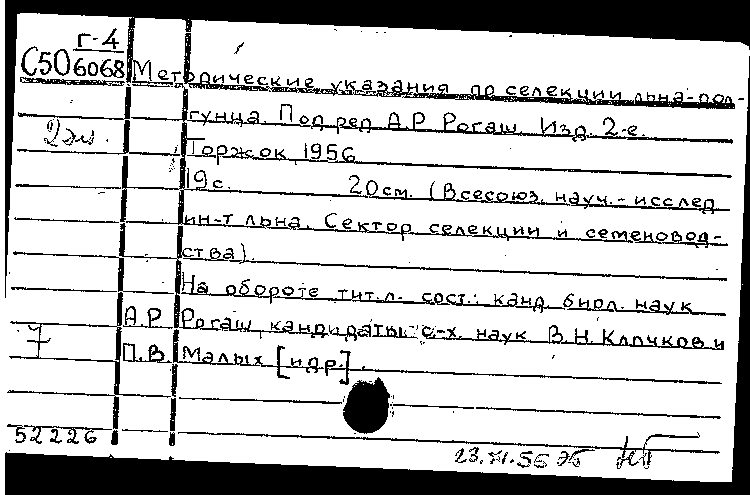 Г-4
С506068 Методические указания по селекции льна-дол-
гунца. Под ред А.Р. Рогаш. Изд. 2-е.
2 эк.
Торжок, 1956
19 с. 20 см. (Всесоюз. науч.-исслед
ин-т льна. Сектор селекции и семеновод-
ства).
На обороте тит.л. сост.: канд. биол. наук
А.Р. Рогаш, кандидаты с-х. наук В.Н. Клочков и
7
П.В. Малых [и др.].
52226
23.XI.56